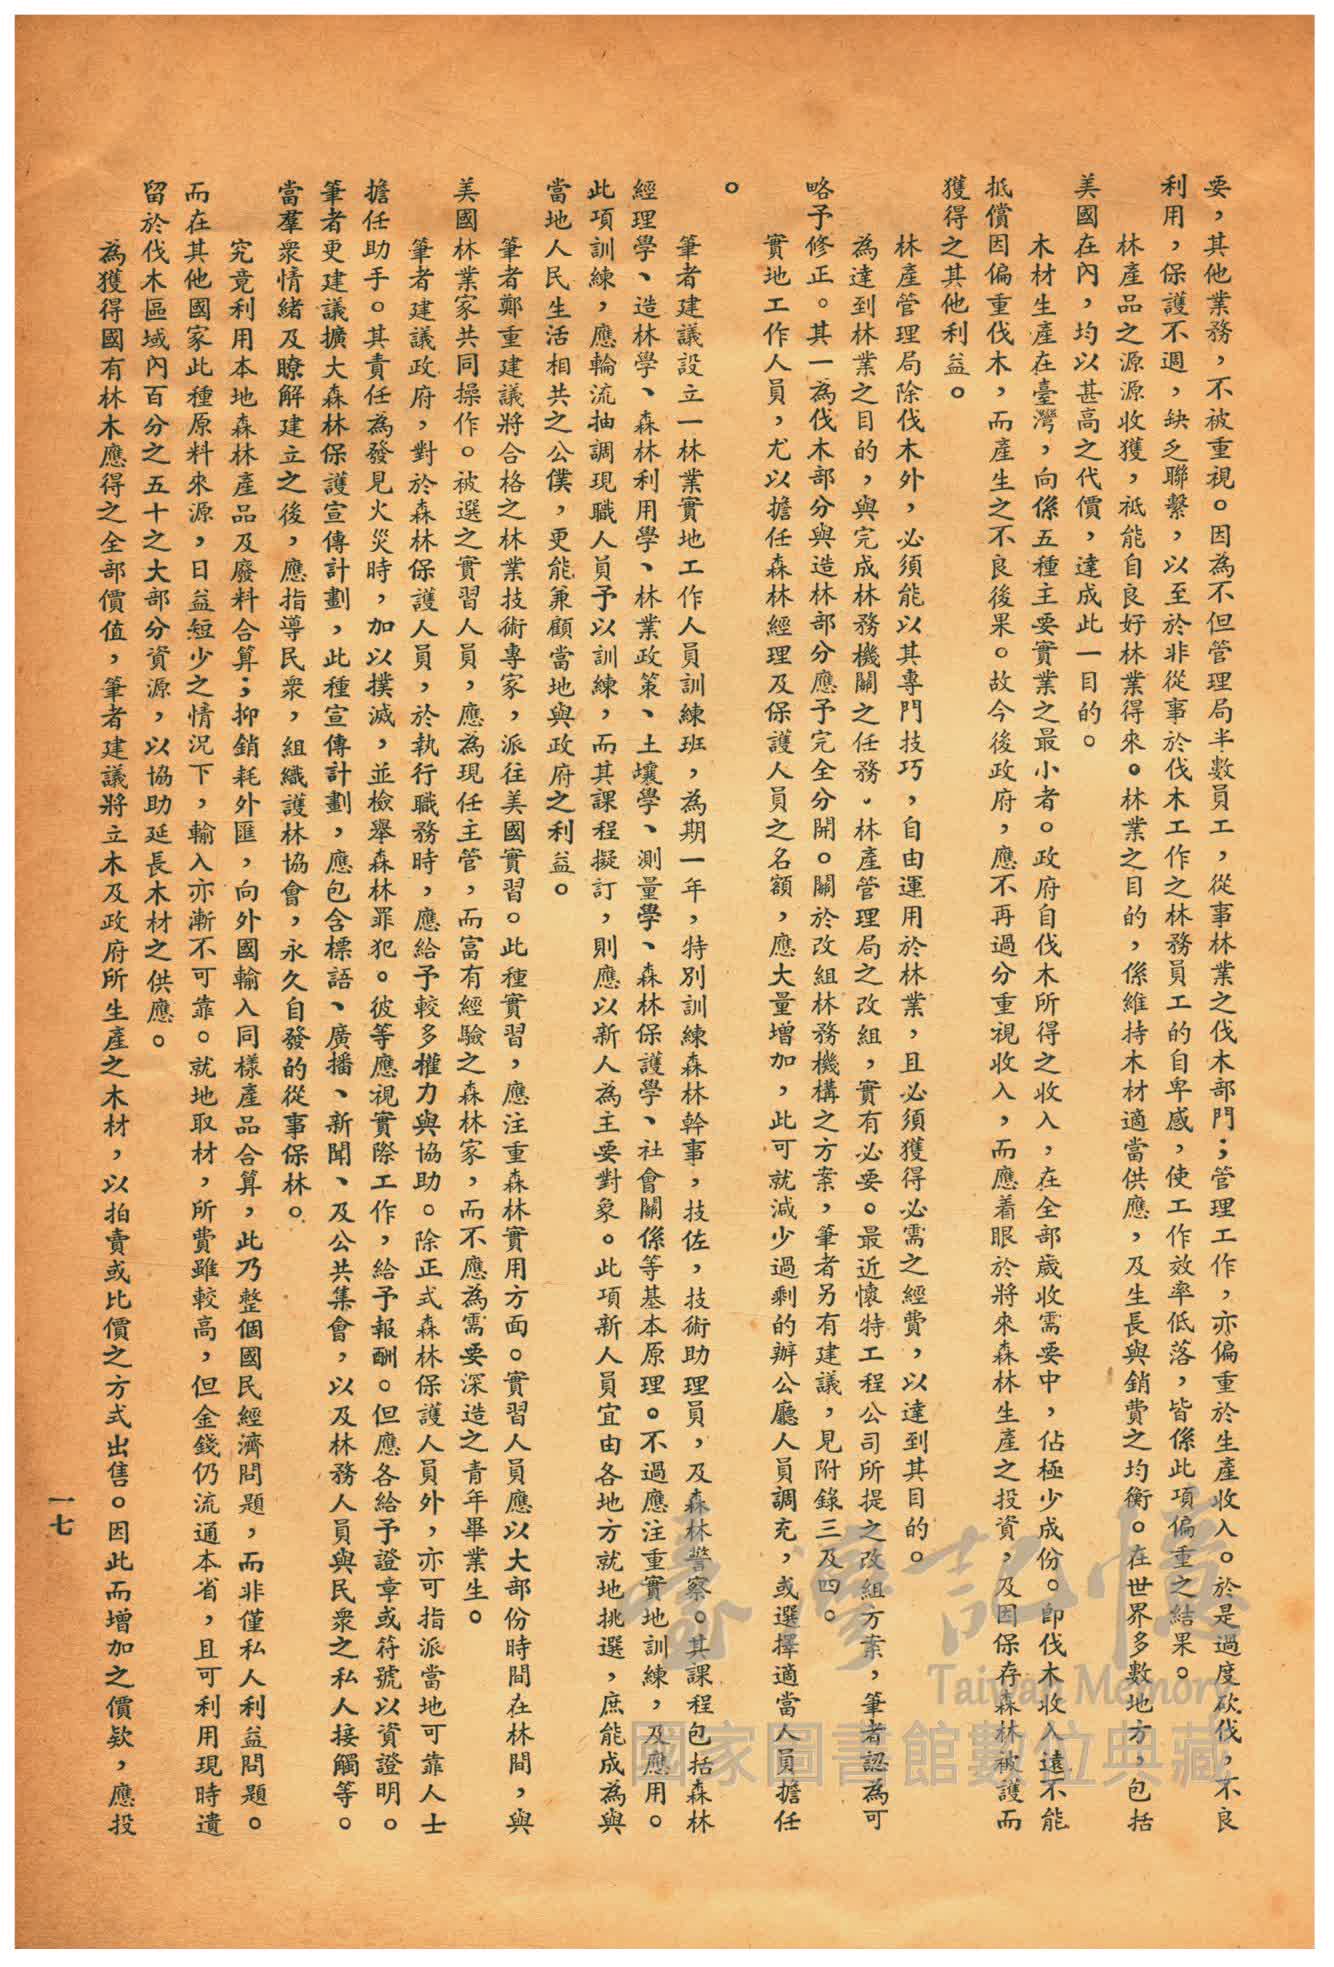 要，其他業務，不被重視。因為不但管理局半數員工，從事林業之伐木部門；管理工作，亦偏重於生產收入。於是過度砍伐，不良
利用，保護不週，缺乏聯繫，以至於非從事於伐木工作之林務員工的自卑感，使工作效率低落，皆係此項偏重之結果。
林產品之源源收獲，祇能自良好林業得來。林業之目的，係維持木材適當供應，及生長與銷費之均衡。在世界多數地方，包括
美國在內，均以甚高之代價，達成此一目的。
木材生產在臺灣，向係五種主要實業之最小者。政府自伐木所得之收入，在全部歲收需要中，佔極少成份。即伐木收入遠不能
抵償因偏重伐木，而產生之不良後果。故今後政府，應不再過分重視收入，而應着眼於將來森林生產之投資，及因保存森林被護而
獲得之其他利益。
林產管理局除伐木外，必須能以其專門技巧，自由運用於林業，且必須獲得必需之經費，以達到其目的。
為達到林業之目的，與完成林務機關之任務。林產管理局之改組，實有必要。最近懷特工程公司所提之改組方案，筆者認為可
略予修正。其一為伐木部分與造林部分應予完全分開。關於改組林務機構之方案，筆者另有建議，見附錄三及四。
實地工作人員，尤以擔任森林經理及保護人員之名額，應大量增加，此可就減少過剩的辦公廳人員調充，或選擇適當人員擔任
。
筆者建議設立一林業實地工作人員訓練班，為期一年，特別訓練森林幹事，技佐，技術助理員，及森林警察。其課程包括森林
經理學、造林學、森林利用學、林業政策、土壤學、測量學、森林保護學、社會關係等基本原理。不過應注重實地訓練，及應用。
此項訓練，應輪流抽調現職人員予以訓練，而其課程擬訂，則應以新人為主要對象。此項新人員宜由各地方就地挑選，庶能成為與
當地人民生活相共之公僕，更能兼顧當地與政府之利益。
筆者鄭重建議將合格之林業技術專家，派往美國實習。此種實習，應注重森林實用方面。實習人員應以大部份時間在林間，與
美國林業家共同操作。被選之實習人員，應為現任主管，而富有經驗之森林家，而不應為需要深造之青年畢業生。
筆者建議政府，對於森林保護人員，於執行職務時，應給予較多權力與協助。除正式森林保護人員外，亦可指派當地可靠人士
擔任助手。其責任為發見火災時，加以撲滅，並檢舉森林罪犯。彼等應視實際工作，給予報酬。但應各給予證章或符號以資證明。
筆者更建議擴大森林保護宣傳計劃，此種宣傳計劃，應包含標語、廣播、新聞、及公共集會，以及林務人員與民衆之私人接觸等。
當羣衆情緒及瞭解建立之後，應指導民衆，組織護林協會，永久自發的從事保林。
究竟利用本地森林產品及廢料合算；抑銷耗外匯，向外國輸入同樣產品合算，此乃整個國民經濟問題，而非僅私人利益問題。
而在其他國家此種原料來源，日益短少之情況下，輸入亦漸不可靠。就地取材，所費雖較高，但金錢仍流通本省，且可利用現時遺
留於伐木區域內百分之五十之大部分資源，以協助延長木材之供應。
為獲得國有林木應得之全部價值，筆者建議將立木及政府所生產之木材，以拍賣或比價之方式出售。因此而增加之價欵，應投
一七
臺灣記憶
Taiwan Memory
國家圖書館數位典藏